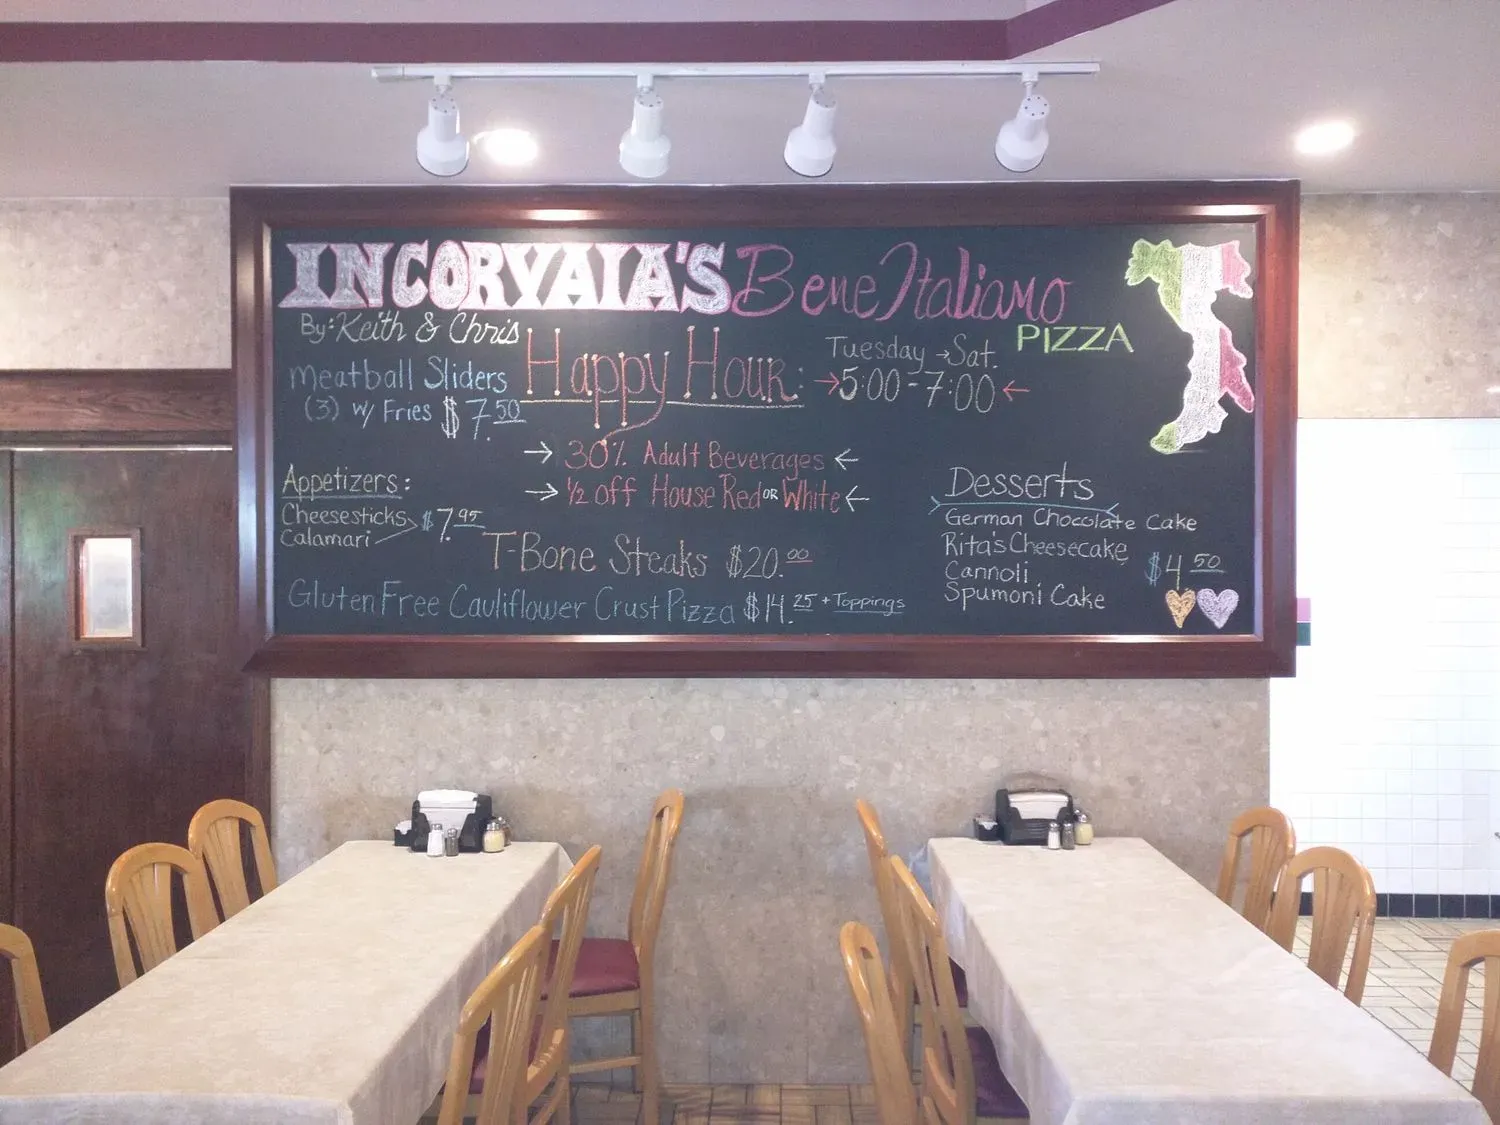 INCORVAIA'S Bene Italiano
PIZZA
By: Keith & Chris
Happy Hour:
Tuesday → Sat.
→ 5:00 - 7:00 ←
Meatball Sliders
(3) w/ Fries $7.50
→ 30% Adult Beverages ←
→ ½ off House Red OR White ←
Appetizers:
Cheesesticks
Calamari
$7.95
T-Bone Steaks $20.00
Gluten Free Cauliflower Crust Pizza $14.25 + Toppings
Desserts
German Chocolate Cake
Rita's Cheesecake
Cannoli
Spumoni Cake
$4.50